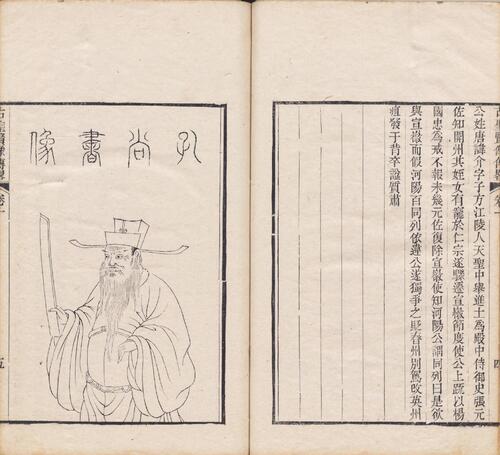 公姓唐諱介字子方江陵人天聖中舉進士為殿中侍御史張元
佐知開州其姪女有寵於仁宗遂驟遷宣徽節度使公上疏以楊
國忠為戒不報未幾元佐復除宣徽使知河陽公謂同列曰是欲
與宣徽而假河陽耳同列依違公遂獨爭之貶春州別駕改英州
疽發于背卒諡質肅
四
孔尚書像
古聖賢像傳畧
五